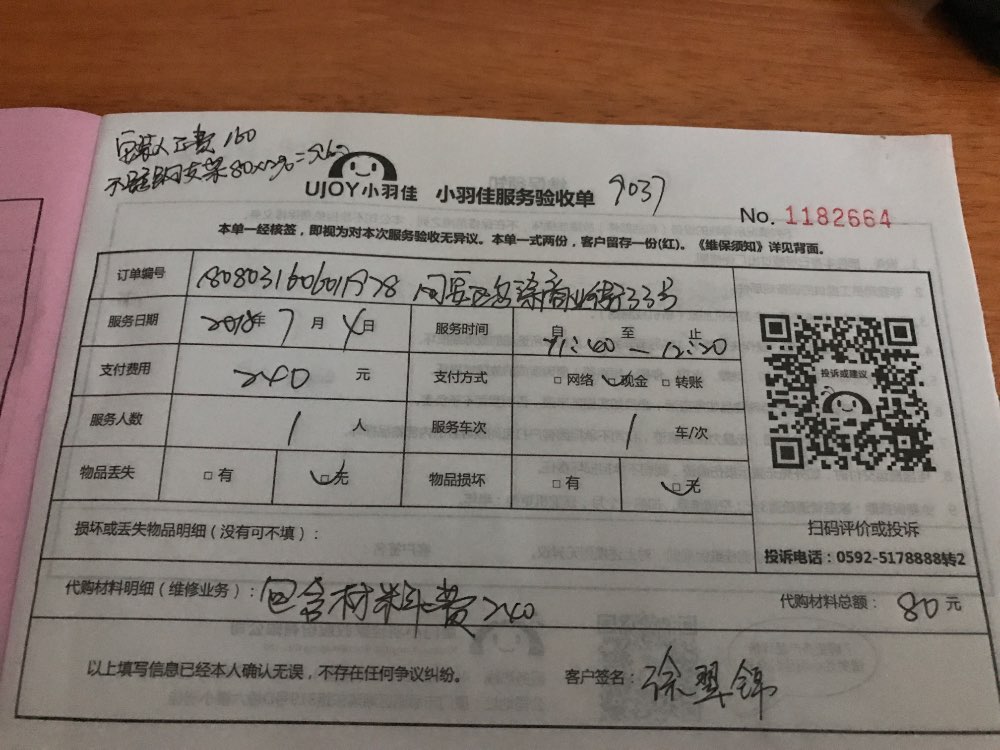 安装人工费 160
不锈钢支架80×2
UJOY小羽佳 小羽佳服务验收单 9037
No. 1182664
本单一经核签，即视为对本次服务验收无异议。本单一式两份，客户留存一份(红)。《维保须知》详见背面。
订单编号 180803160601978 商业街33号
服务日期 2018年 7 月 4 日 服务时间 自 至 止 11:40 — 12:20
支付费用 240 元 支付方式 □网络 现金 □转账
投诉或建议
服务人数 1 人 服务车次 1 车/次
物品丢失 □有 □无 物品损坏 □有 □无
损坏或丢失物品明细（没有可不填）：
扫码评价或投诉
投诉电话：0592-5178888转2
代购材料明细（维修业务）：包含材料费240 代购材料总额： 80 元
以上填写信息已经本人确认无误，不存在任何争议纠纷。 客户签名：徐翠锦